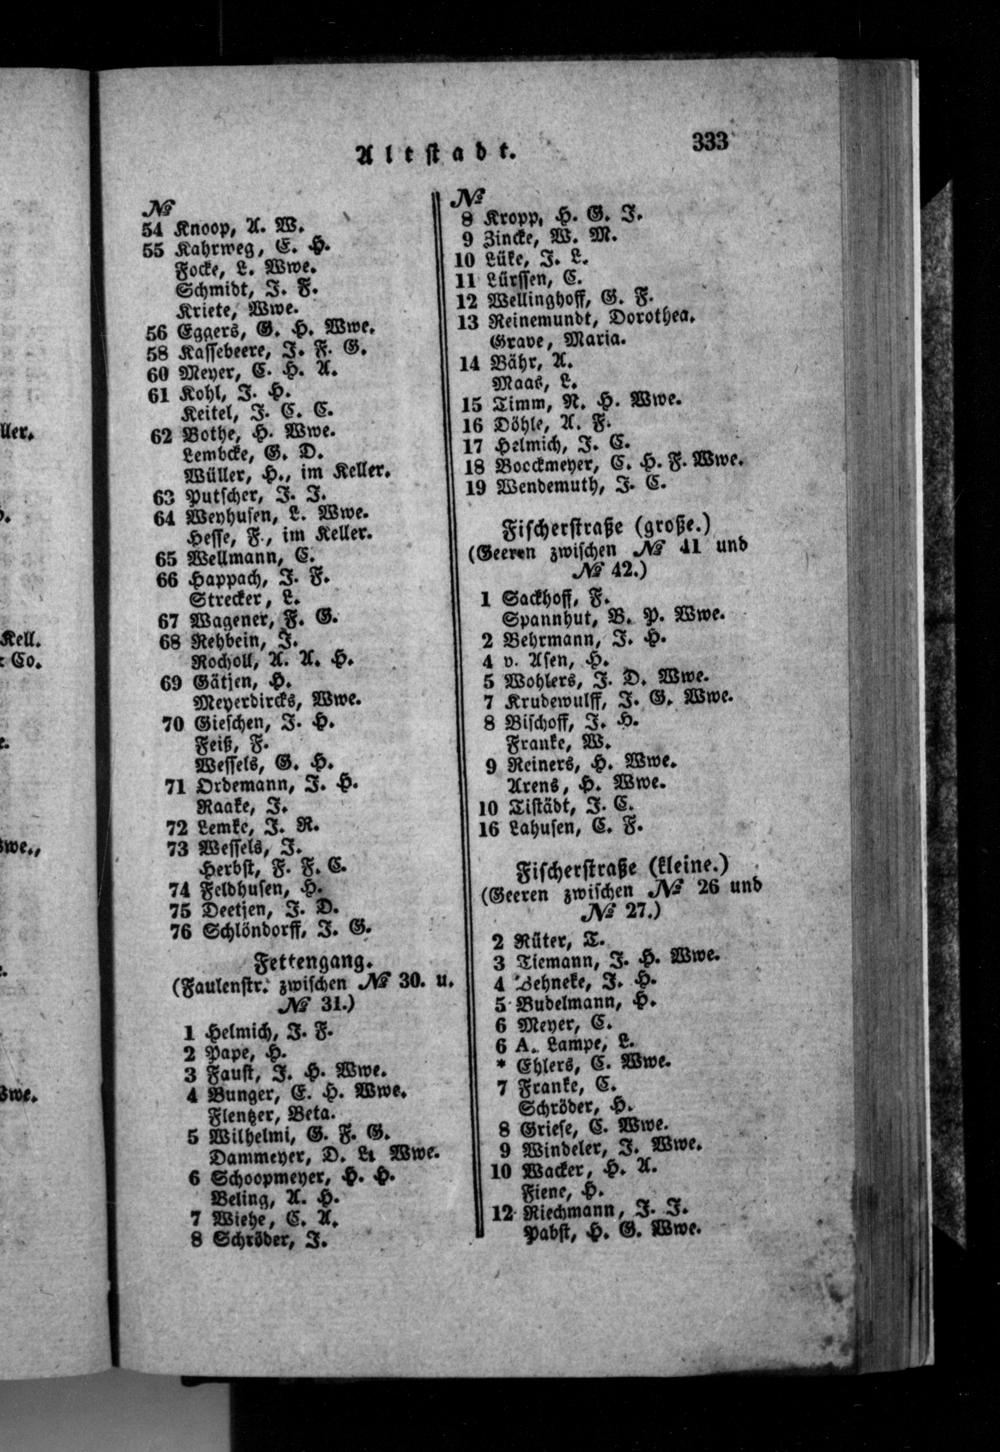 Altstadt.
333
№
54 Knoop, A. W.
55 Kahrweg, E. H.
Focke, L. Wwe.
Schmidt, J. F.
Kriete, Wwe.
56 Eggers, G. H. Wwe.
58 Kassebeere, J. F. G.
60 Meyer, C. H. A.
61 Kohl, J. H.
Keitel, J. C. C.
62 Bothe, H. Wwe.
Lembcke, G. D.
Wüller, H., im Keller.
63 Putscher, J. J.
64 Weyhusen, L. Wwe.
Hesse, F., im Keller.
65 Wellmann, C.
66 Happach, J. F.
Strecker, L.
67 Wagener, F. G.
68 Rehbein, J.
Rocholl, A. A. H.
69 Gätjen, H.
Meyerdircks, Wwe.
70 Gieschen, J. H.
Feiß, F.
Wessels, G. H.
71 Ordemann, J. H.
Raake, J.
72 Lemke, J. N.
73 Wessels, J.
Herbst, F. F. C.
74 Feldhusen, H.
75 Deetjen, J. D.
76 Schlöndorff, J. G.
Fettengang.
(Faulenstr. zwischen № 30. u.
№ 31.)
1 Helmich, J. F.
2 Pape, H.
3 Faust, J. H. Wwe.
4 Bunger, E. H. Wwe.
Flentzer, Beta.
5 Wilhelmi, G. F. G.
Dammeyer, D. L. Wwe.
6 Schoopmeyer, H. H.
Beling, A. H.
7 Wiehe, C. A.
8 Schröder, J.
№
8 Kropp, H. G. J.
9 Zincke, W. M.
10 Lüke, J. L.
11 Lürssen, C.
12 Wellinghoff, G. F.
13 Reinemundt, Dorothea.
Grave, Maria.
14 Bähr, A.
Maas, L.
15 Timm, N. H. Wwe.
16 Döhle, A. F.
17 Helmich, J. C.
18 Boockmeyer, C. H. F. Wwe.
19 Wendemuth, J. C.
Fischerstraße (große.)
(Geeren zwischen № 41 und
№ 42.)
1 Sackhoff, F.
Spannhut, B. P. Wwe.
2 Behrmann, J. H.
4 v. Asen, H.
5 Wohlers, J. D. Wwe.
7 Krudewulff, J. G. Wwe.
8 Bischoff, J. H.
Franke, W.
9 Reiners, H. Wwe.
Arens, H. Wwe.
10 Tistädt, J. C.
16 Lahusen, C. F.
Fischerstraße (kleine.)
(Geeren zwischen № 26 und
№ 27.)
2 Rüter, T.
3 Tiemann, J. H. Wwe.
4 Behneke, J. H.
5 Budelmann, H.
6 Meyer, C.
6 A. Lampe, L.
* Ehlers, C. Wwe.
7 Franke, C.
Schröder, H.
8 Griese, C. Wwe.
9 Windeler, J. Wwe.
10 Wacker, H. A.
Fiene, H.
12 Riechmann, J. J.
Pabst, H. G. Wwe.